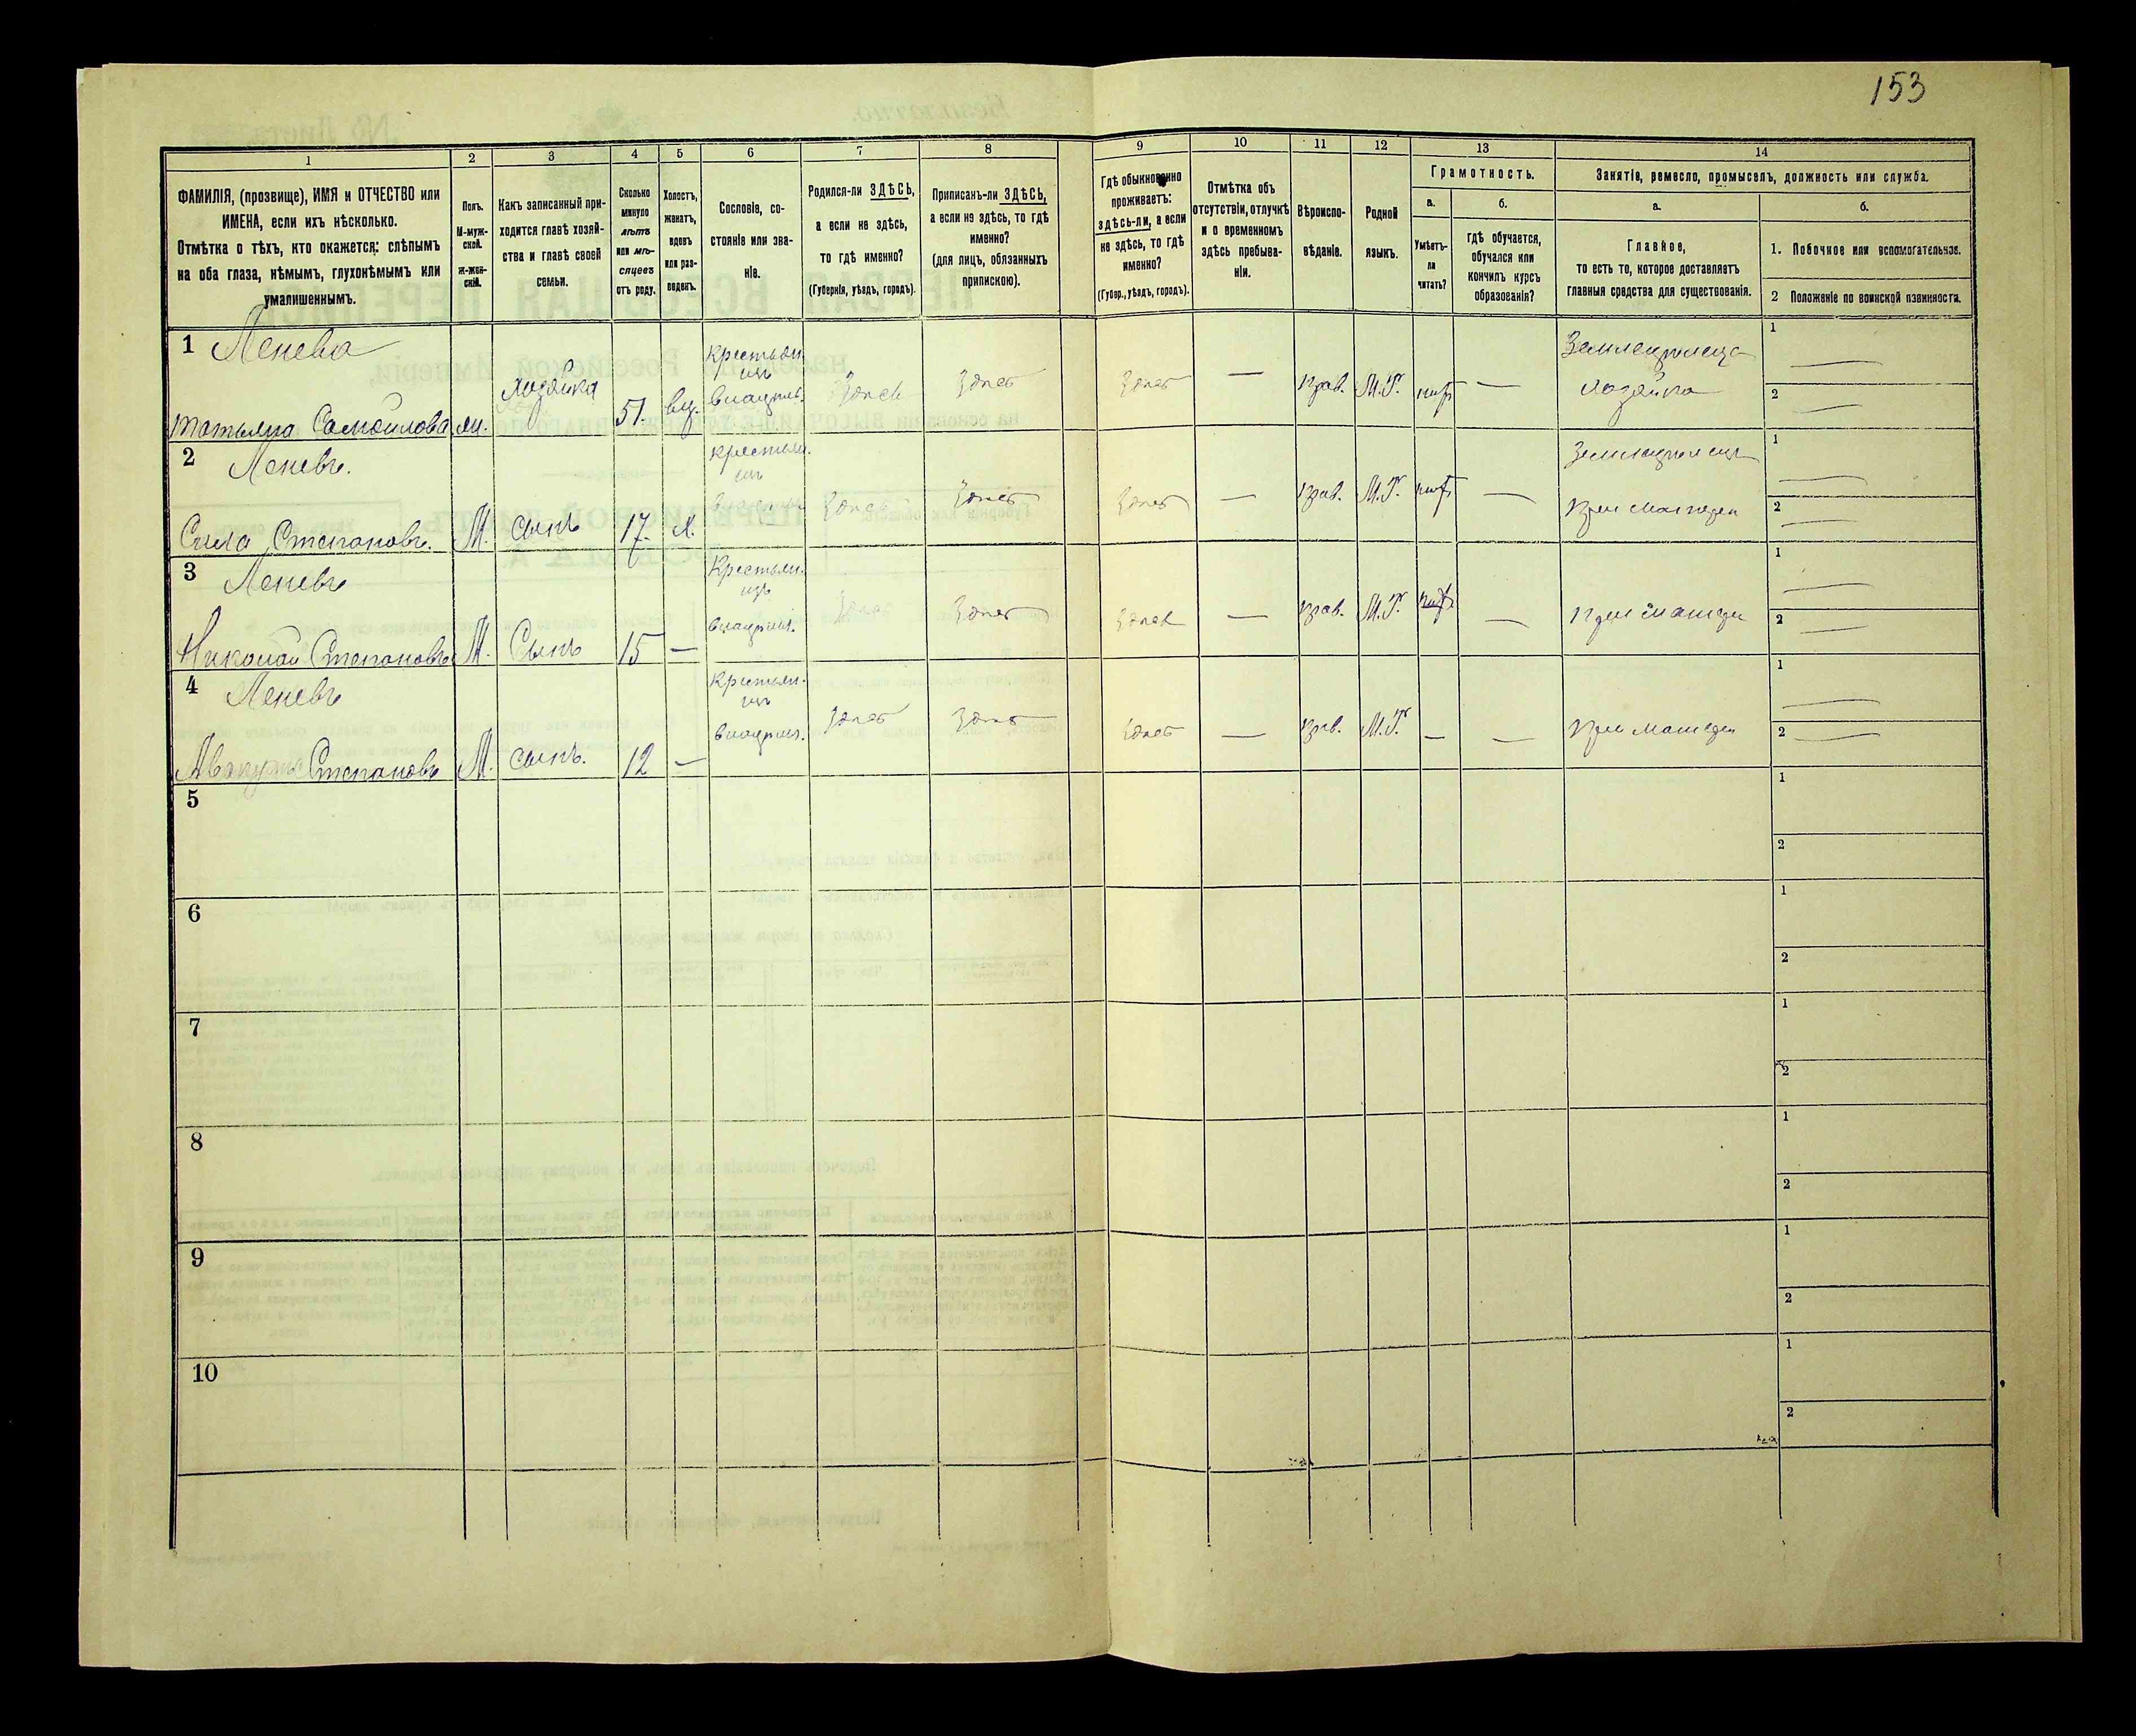 153
1
2
3
4
5
6
7
8
9
10
11
12
13
14
ФАМИЛІЯ, (прозвище), ИМЯ и ОТЧЕСТВО или
ИМЕНА, если ихъ нѣсколько.
Отмѣтка о тѣхъ, кто окажется: слѣпымъ
на оба глаза, нѣмымъ, глухонѣмымъ или
умалишеннымъ.
Полъ.
М-муж-
ской.
ж-жен-
скій.
Какъ записанный при-
ходится главѣ хозяй-
ства и главѣ своей
семьи.
Сколько
минуло
лѣтъ
или мѣ-
сяцевъ
отъ роду.
Холостъ,
женатъ,
вдовъ
или раз-
веденъ.
Сословіе, со-
стояніе или зва-
ніе.
Родился-ли ЗДѢСЬ,
а если не здѣсь,
то гдѣ именно?
(Губернія, уѣздъ, городъ).
Приписанъ-ли ЗДѢСЬ,
а если не здѣсь, то гдѣ
именно?
(для лицъ, обязанныхъ
припискою).
Гдѣ обыкновенно
проживаетъ:
здѣсь-ли, а если
не здѣсь, то гдѣ
именно?
(Губер., уѣздъ, городъ).
Отмѣтка объ
отсутствіи, отлучкѣ
и о временномъ
здѣсь пребыва-
ніи.
Вѣроиспо-
вѣданіе.
Родной
языкъ.
Грамотность.
а.
Умѣетъ-
ли
читать?
б.
гдѣ обучается,
обучался или
кончилъ курсъ
образованія?
Занятіе, ремесло, промыселъ, должность или служба.
а.
Главное,
то есть то, которое доставляетъ
главныя средства для существованія.
б.
1. Побочное или вспомогательное.
2 Положеніе по воинской повинности.
1 Ленева
Татьяна Самойлова
Хозяйка
51.
вд.
Крестьян
изъ
владѣл.
Здѣсь
Здѣсь
Здѣсь
—
прав.
М.Р.
—
Хозяйка
1 —
2 —
2 Леневъ.
Сила Степановъ.
М.
сынъ
17.
Х.
крестьян.
изъ
Здѣсь
Здѣсь
Здѣсь
—
прав.
М.Р.
—
При матери
1 —
2 —
3 Леневъ
Николай Степановъ
М.
Сынъ
15
—
Крестьян.
изъ
владѣл.
Здѣсь
Здѣсь
Здѣсь
—
прав.
М.Р.
—
При матери
1 —
2 —
4 Леневъ
Авакумъ Степановъ
М.
сынъ.
12
—
Крестьян.
изъ
владѣл.
Здѣсь
Здѣсь
Здѣсь
—
прав.
М.Р.
—
—
При матери
1 —
2 —
5
1
2
6
1
2
7
1
2
8
1
2
9
1
2
10
1
2